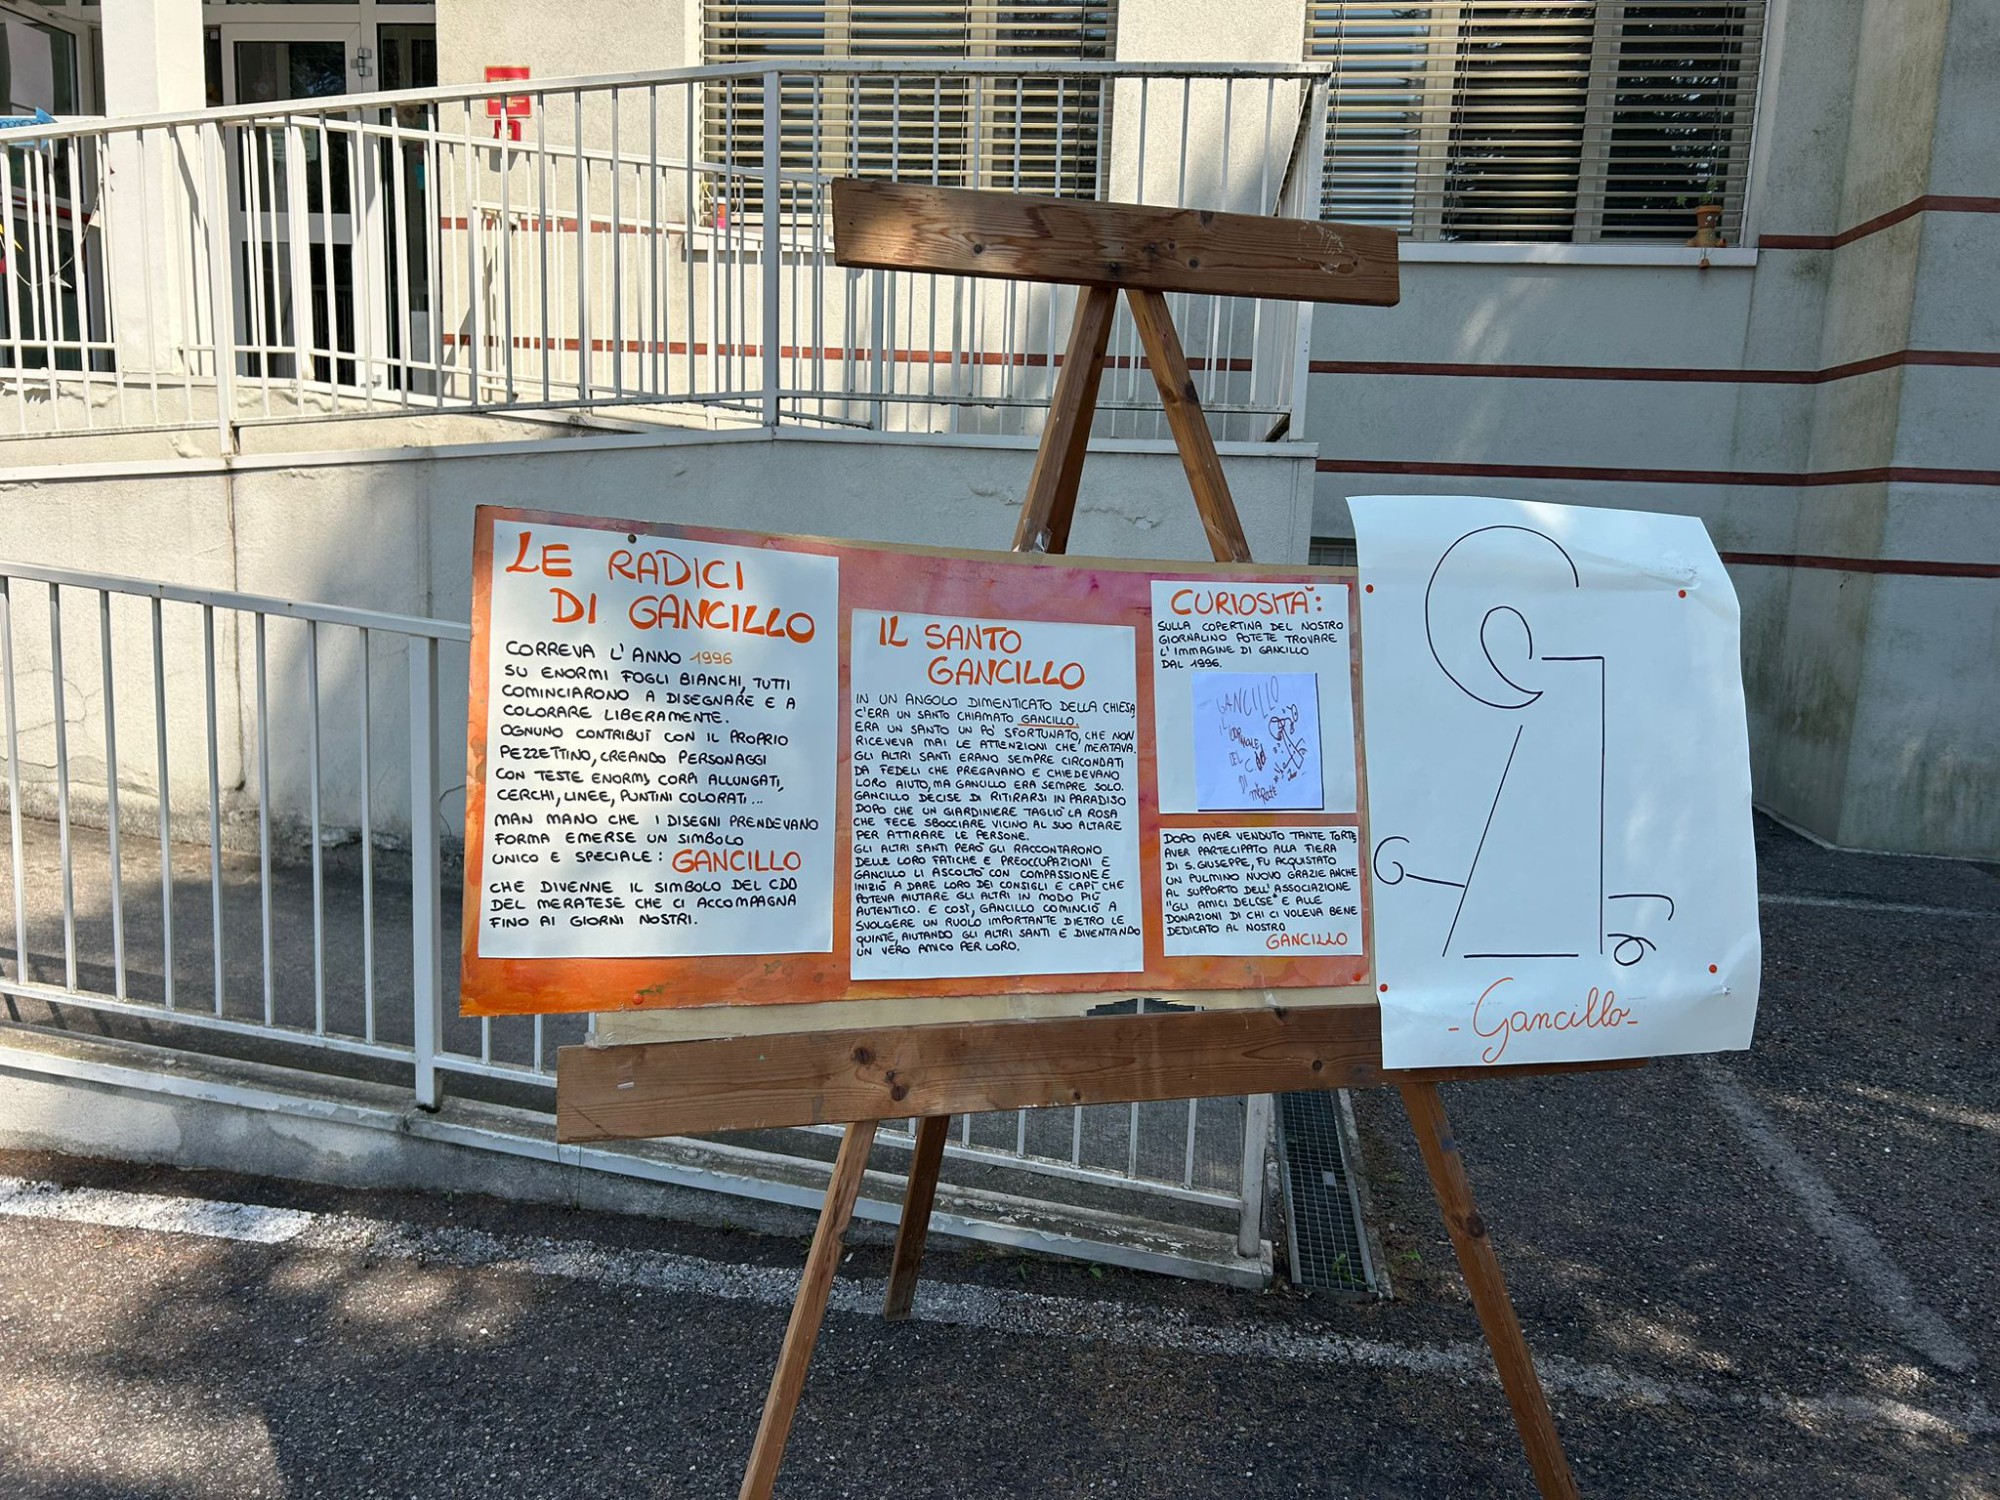 LE RADICI
DI GANCILLO
CORREVA L'ANNO 1996
SU ENORMI FOGLI BIANCHI, TUTTI
COMINCIARONO A DISEGNARE E A
COLORARE LIBERAMENTE.
OGNUNO CONTRIBUÌ CON IL PROPRIO
PEZZETTINO, CREANDO PERSONAGGI
CON TESTE ENORMI, CORPI ALLUNGATI,
CERCHI, LINEE, PUNTINI COLORATI...
MAN MANO CHE I DISEGNI PRENDEVANO
FORMA EMERSE UN SIMBOLO
UNICO E SPECIALE: GANCILLO
CHE DIVENNE IL SIMBOLO DEL CDD
DEL MERATESE CHE CI ACCOMPAGNA
FINO AI GIORNI NOSTRI.
IL SANTO
GANCILLO
IN UN ANGOLO DIMENTICATO DELLA CHIESA
C'ERA UN SANTO CHIAMATO GANCILLO.
ERA UN SANTO UN PO' SFORTUNATO, CHE NON
RICEVEVA MAI LE ATTENZIONI CHE MERITAVA.
GLI ALTRI SANTI ERANO SEMPRE CIRCONDATI
DA FEDELI CHE PREGAVANO E CHIEDEVANO
LORO AIUTO, MA GANCILLO ERA SEMPRE SOLO.
GANCILLO DECISE DI RITIRARSI IN PARADISO
DOPO CHE UN GIARDINIERE TAGLIÒ LA ROSA
CHE FECE SBOCCIARE VICINO AL SUO ALTARE
PER ATTIRARE LE PERSONE.
GLI ALTRI SANTI PERÒ GLI RACCONTARONO
DELLE LORO FATICHE E PREOCCUPAZIONI E
GANCILLO LI ASCOLTÒ CON COMPASSIONE E
INIZIÒ A DARE LORO DEI CONSIGLI E CAPÌ CHE
POTEVA AIUTARE GLI ALTRI IN MODO PIÙ
AUTENTICO. E COSÌ, GANCILLO COMINCIÒ A
SVOLGERE UN RUOLO IMPORTANTE DIETRO LE
QUINTE, AIUTANDO GLI ALTRI SANTI E DIVENTANDO
UN VERO AMICO PER LORO.
CURIOSITÀ:
SULLA COPERTINA DEL NOSTRO
GIORNALINO POTETE TROVARE
L'IMMAGINE DI GANCILLO
DAL 1996.
GANCILLO
IL GIORNALE
DEL CDD
DI
MERATE
DOPO AVER VENDUTO TANTE TORTE,
AVER PARTECIPATO ALLA FIERA
DI S. GIUSEPPE, FU ACQUISTATO
UN PULMINO NUOVO GRAZIE ANCHE
AL SUPPORTO DELL'ASSOCIAZIONE
"GLI AMICI DELCSE" E ALLE
DONAZIONI DI CHI CI VOLEVA BENE
DEDICATO AL NOSTRO
GANCILLO
- Gancillo -